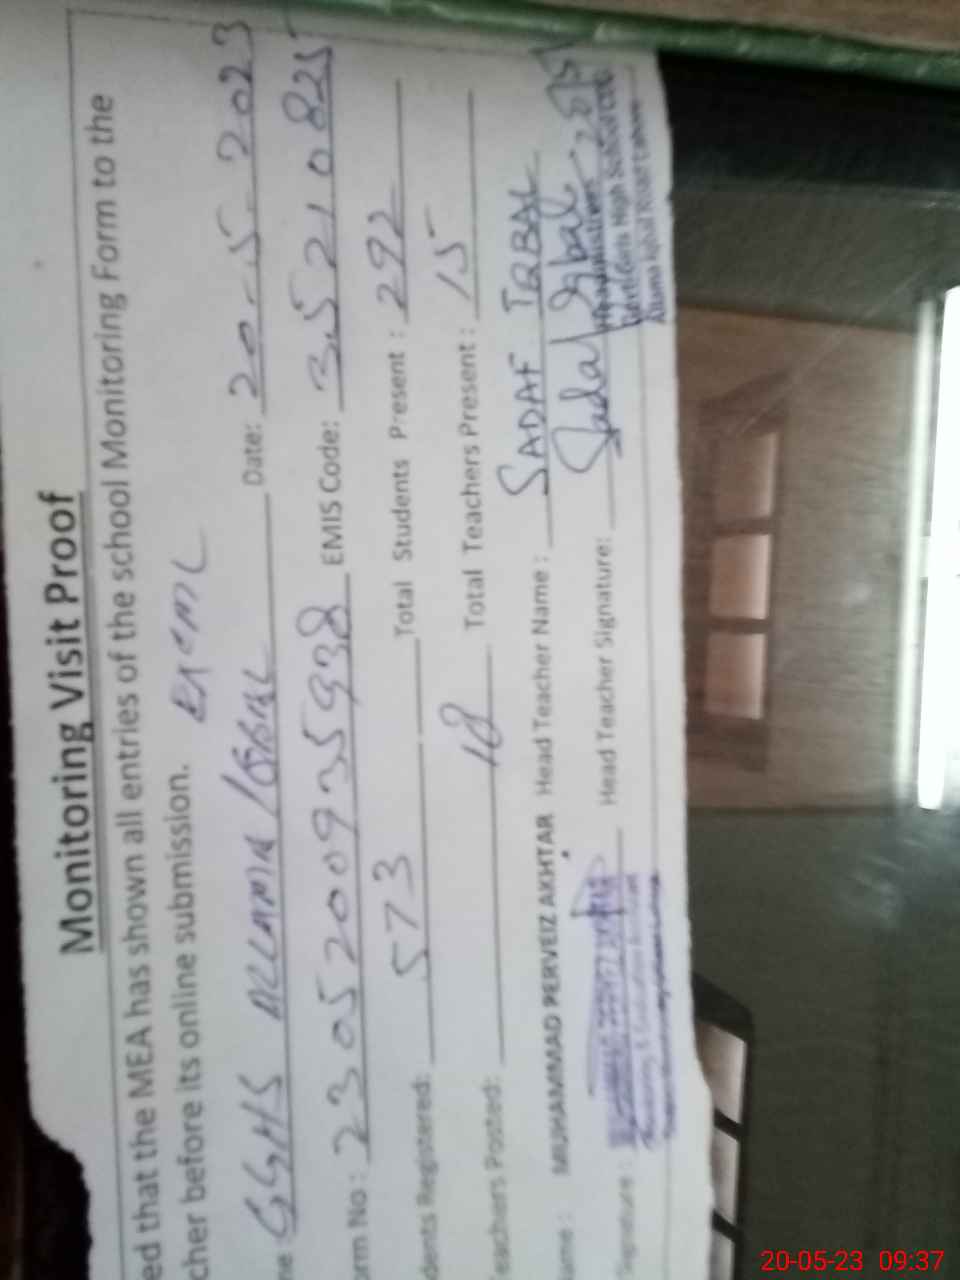 Monitoring Visit Proof
ed that the MEA has shown all entries of the school Monitoring Form to the
cher before its online submission.
me GGHS ALLAMA IQBAL Date: 20-5-2023
orm No: 2305200935938 EMIS Code: 35210825
dents Registered: 573 Total Students Present: 292
Teachers Posted: 18 Total Teachers Present: 15
ame: MUHAMMAD PERVEIZ AKHTAR Head Teacher Name: SADAF IQBAL
Signature: Head Teacher Signature: Sadaf Iqbal
Headmistress
Govt. Girls High School
20-05-23 09:37